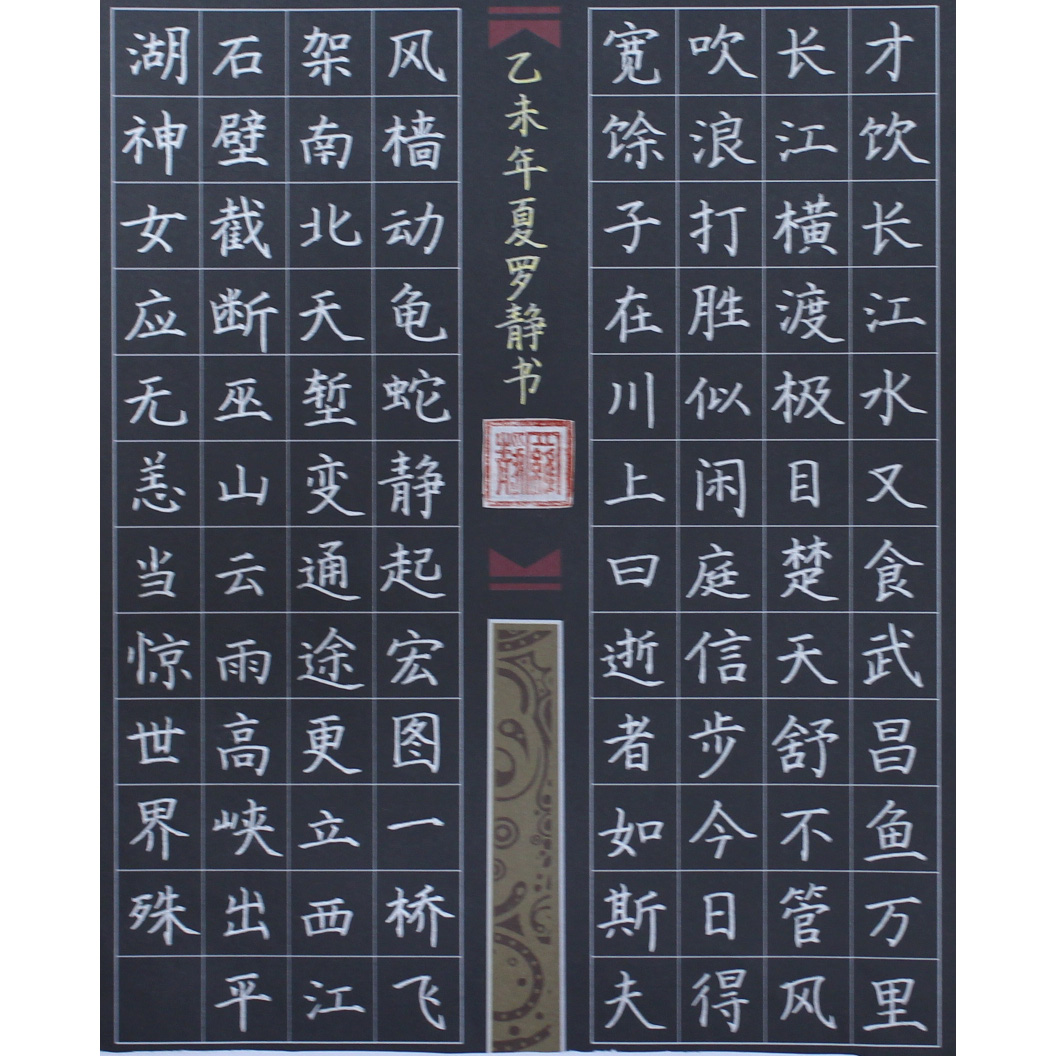 才饮长江水又食武昌鱼万里
长江横渡极目楚天舒不管风
吹浪打胜似闲庭信步今日得
宽馀子在川上曰逝者如斯夫
风樯动龟蛇静起宏图一桥飞
架南北天堑变通途更立西江
石壁截断巫山云雨高峡出平
湖神女应无恙当惊世界殊
乙未年夏罗静书